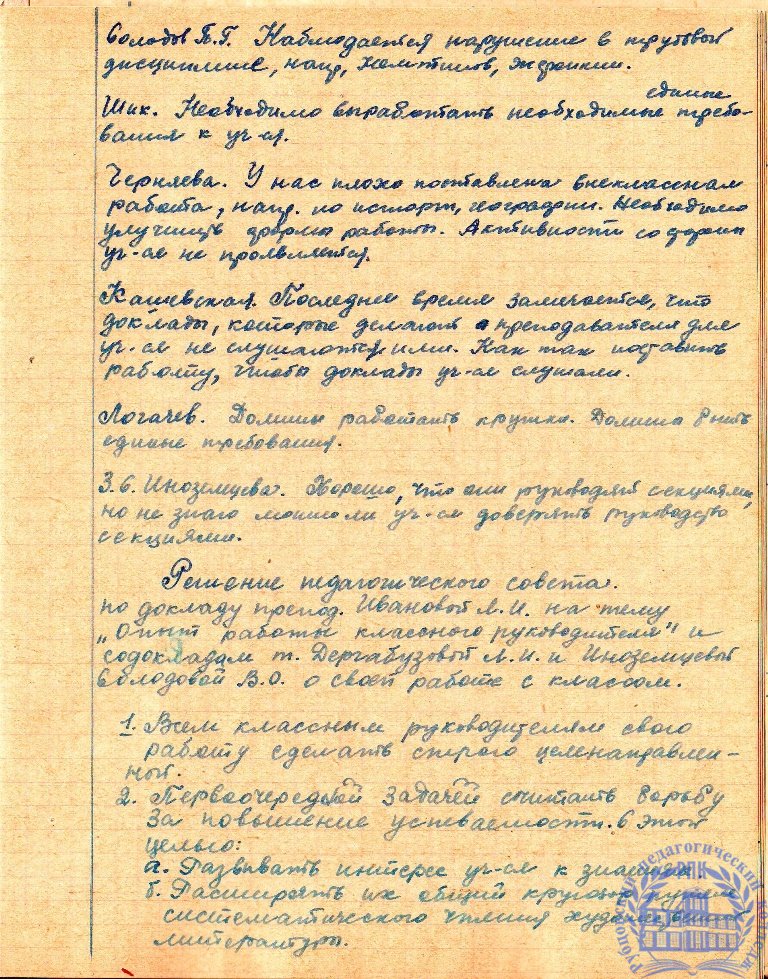 Солодов П.Г. Наблюдается нарушение в трудовой
дисциплине, напр,
единые
Шик. Необходимо выработать необходимые требо-
вания к уч-ся.
Черняева. У нас плохо поставлена внеклассная
работа, напр. по истории, географии. Необходимо
улучшить формы работы. Активности со стороны
уч-ся не проявляется.
Кашевская. Последнее время замечается, что
доклады, которые делают преподаватели для
уч-ся не слушаются ими. Как так поставить
работу, чтобы доклады уч-ся слушали.
Логачев. Должны работать кружки. Должны быть
единые требования.
З.Б. Иноземцева. Хорошо, что они руководят секциями,
но не знаю можно ли уч-ся доверять руководство
секциями.
Решение педагогического совета.
по докладу препод. Ивановой Л.И. на тему
„Опыт работы классного руководителя" и
содокладам т. Дергабузовой Л.И. и Иноземцевой
Солодовой В.О. о своей работе с классом.
1. Всем классным руководителям свою
работу сделать строго целенаправлен-
ной.
2. Первоочередной задачей считать борьбу
за повышение успеваемости. С этой
целью:
а. Развивать интерес уч-ся к знаниям
б. Расширять их общий кругозор путем
систематического чтения художественной
литературы.
Рубцовский педагогический колледж
РПК